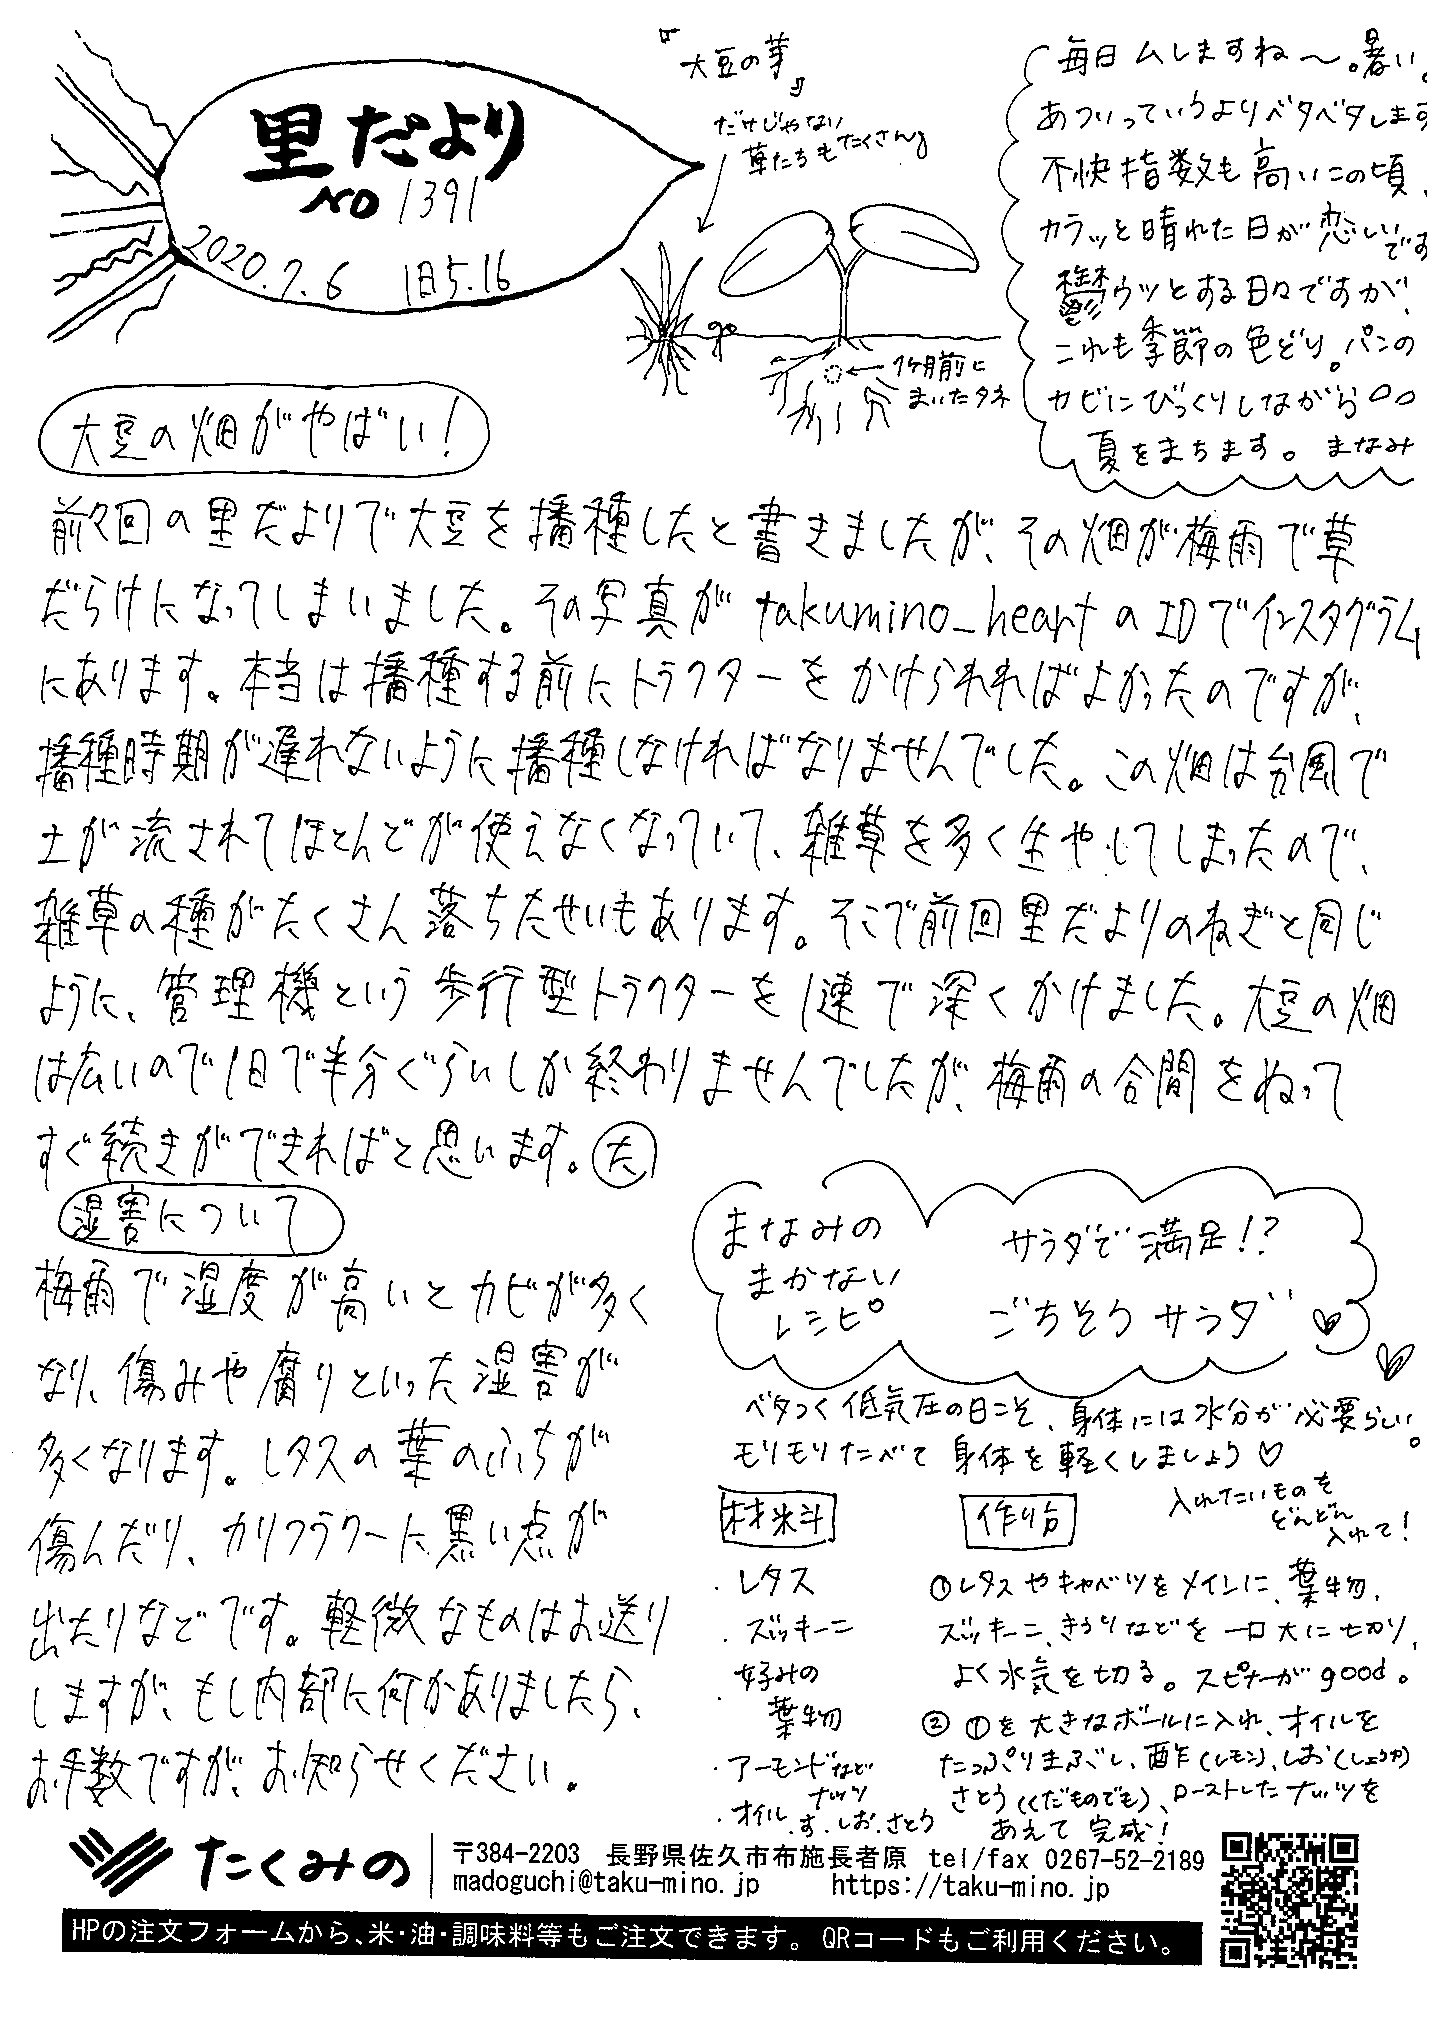 里だより
NO 1391
2020.7.6 1日5.16
『大豆の芽』
だけじゃない
草たちもたくさん
1ヶ月前に
まいたタネ
毎日ムしますね〜。暑い。
あついっていうよりベタベタします
不快指数も高いこの頃、
カラッと晴れた日が恋しいです
鬱ウッとする日々ですが、
これも季節の色どり。パンの
カビにびっくりしながら
夏をまちます。 まなみ
大豆の畑がやばい!
前々回の里だよりで大豆を播種したと書きましたが、その畑が梅雨で草
だらけになってしまいました。その写真が takumino_heartのIDでインスタグラム
にあります。本当は播種する前にトラクターをかけられればよかったのですが、
播種時期が遅れないように播種しなければなりませんでした。この畑は台風で
土が流されてほとんどが使えなくなっていて、雑草を多く生やしてしまったので、
雑草の種がたくさん落ちたせいもあります。そこで前回里だよりのねぎと同じ
ように、管理機という歩行型トラクターを1速で深くかけました。大豆の畑
は広いので1日で半分ぐらいしか終わりませんでしたが、梅雨の合間をぬって
すぐ続きができればと思います。た
湿害について
梅雨で湿度が高いとカビが多く
なり、傷みや腐りといった湿害が
多くなります。レタスの葉のふちが
傷んだり、カリフラワーに黒い点が
出たりなどです。軽微なものはお送り
しますが、もし内部に何かありましたら、
お手数ですが、お知らせください。
まなみの
まかない
レシピ
サラダで満足!?
ごちそうサラダ
ベタつく低気圧の日こそ、身体には水分が必要らしい。
モリモリたべて身体を軽くしましょう♡
材料
・レタス
・ズッキーニ
・好みの
葉物
・アーモンドなど
ナッツ
・オイル、す、しお、さとう
作り方
入れたいものを
どんどん
入れて!
①レタスやキャベツをメインに、葉物、
ズッキーニ、きうりなどを一口大に切り、
よく水気を切る。スピナーがgood。
② ①を大きなボールに入れ、オイルを
たっぷりまぶし、酢(レモン)、しお(しょうゆ)
さとう(くだものでも)、ローストしたナッツを
あえて完成!
たくみの
〒384-2203 長野県佐久市布施長者原 tel/fax 0267-52-2189
madoguchi@taku-mino.jp https://taku-mino.jp
HPの注文フォームから、米・油・調味料等もご注文できます。QRコードもご利用ください。